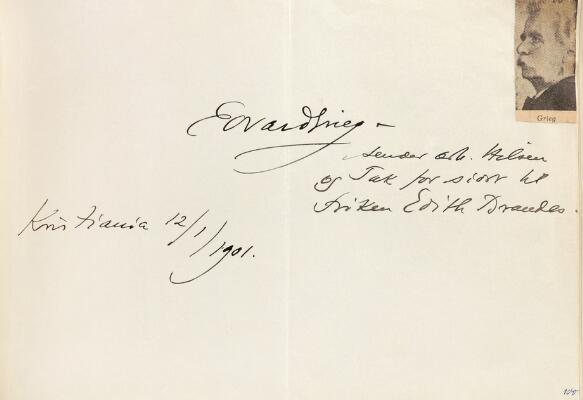 Grieg
Edvard Grieg –
sender ærb. Hilsen
og Tak for sidst til
Frøken Edith Brandes.
Kristiania 12/1/1901.